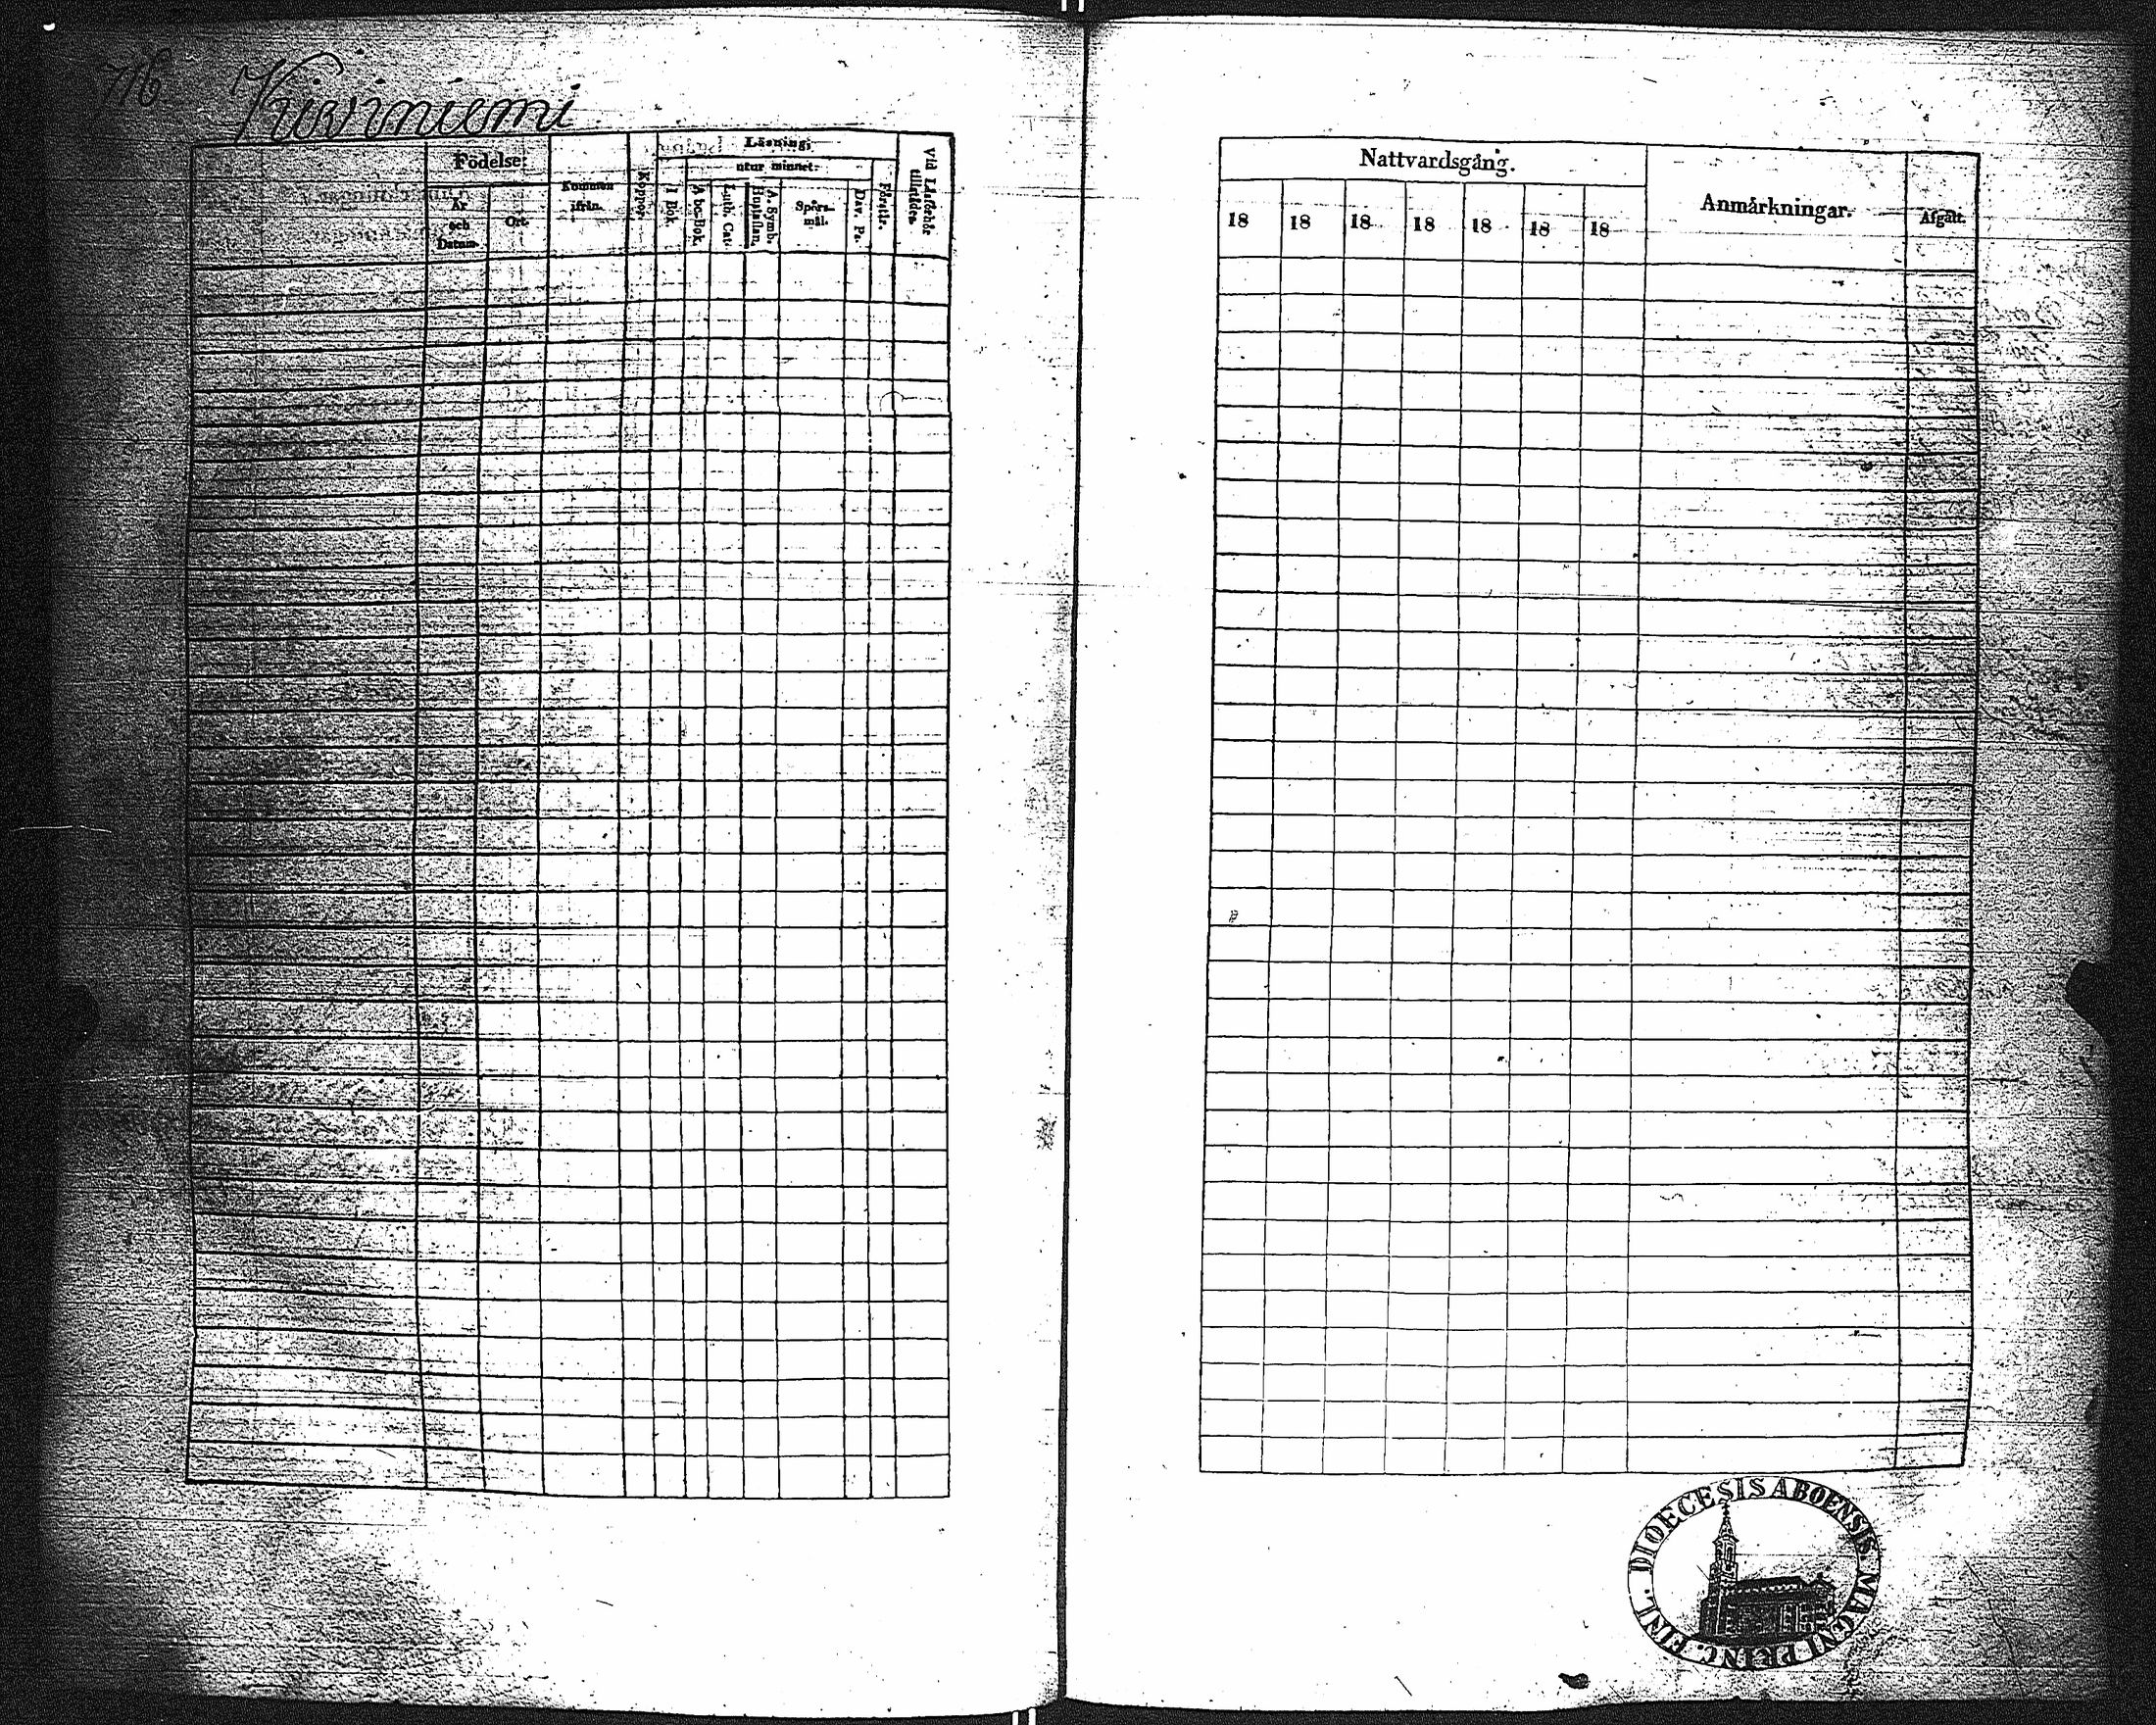 776 Kiviniemi
Födelse:
År och Datum.
Ort.
Kommen ifrån.
Koppor.
Läsning:
utur minnet:
I Bok.
A bc-Bok.
Luth. Cat.
Hustaflan.
A. Symb.
Spörsmål.
Dav. Ps.
Förstår.
Vid Läsförhör tillstädes.
Nattvardsgång.
18 18 18 18 18 18 18
Anmärkningar.
Afgått.
DIOECESIS ABOENSIS MAGNI PRINC. FINL.